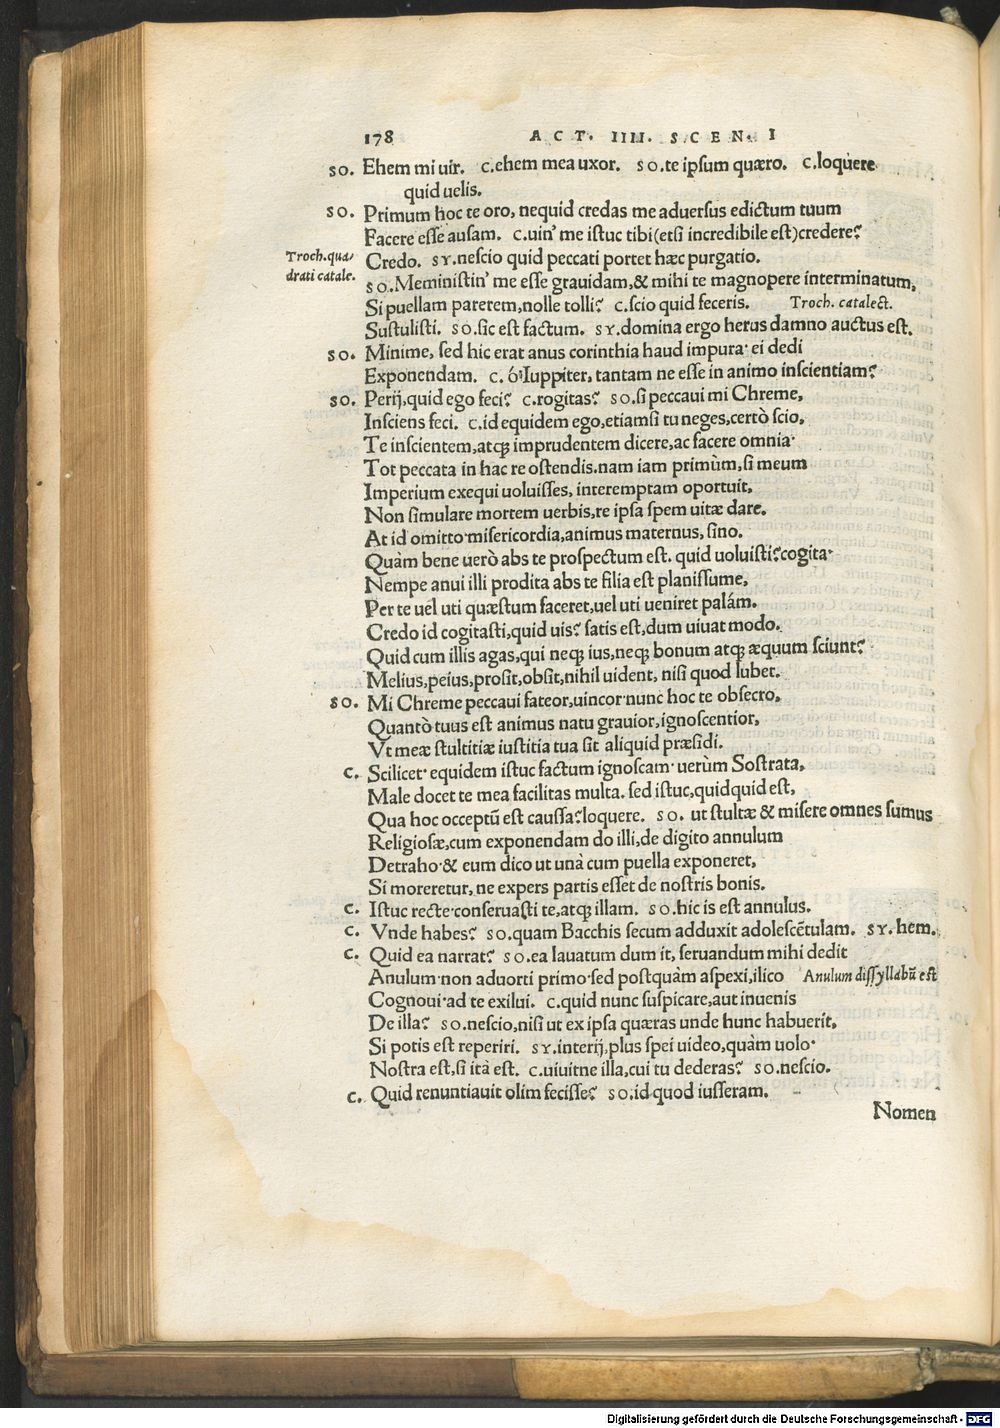 178 ACT. IIII. SCEN. I
SO. Ehem mi uir. C.ehem mea uxor. SO.te ipsum quæro. C.loquere
quid uelis.
SO. Primum hoc te oro, nequid credas me aduersus edictum tuum
Facere esse ausam. C.uin' me istuc tibi(etsi incredibile est)credere?
Troch.qua/ Credo. SY.nescio quid peccati portet hæc purgatio.
drati catale. SO.Meministin' me esse grauidam,& mihi te magnopere interminatum,
Si puellam parerem,nolle tolli? C.scio quid feceris. Troch. catalect.
Sustulisti. SO.sic est factum. SY.domina ergo herus damno auctus est.
SO. Minime, sed hic erat anus corinthia haud impura· ei dedi
Exponendam. C. ô Iuppiter, tantam ne esse in animo inscientiam?
SO. Perij,quid ego feci? C.rogitas? SO.si peccaui mi Chreme,
Insciens feci. C.id equidem ego,etiamsi tu neges,certò scio,
Te inscientem,atq; imprudentem dicere,ac facere omnia·
Tot peccata in hac re ostendis.nam iam primùm,si meum
Imperium exequi uoluisses, interemptam oportuit,
Non simulare mortem uerbis,re ipsa spem uitæ dare.
At id omitto·misericordia,animus maternus, sino.
Quàm bene uerò abs te prospectum est. quid uoluisti?cogita·
Nempe anui illi prodita abs te filia est planissume,
Per te uel uti quæstum faceret,uel uti ueniret palám.
Credo id cogitasti,quid uis? satis est,dum uiuat modo.
Quid cum illis agas,qui neq; ius,neq; bonum atq; æquum sciunt?
Melius,peius,prosit,obsit,nihil uident, nisi quod lubet.
SO. Mi Chreme peccaui fateor,uincor·nunc hoc te obsecro,
Quantò tuus est animus natu grauior,ignoscentior,
Vt meæ stultitiæ iustitia tua sit aliquid præsidi.
C. Scilicet· equidem istuc factum ignoscam· uerùm Sostrata,
Male docet te mea facilitas multa. sed istuc,quidquid est,
Qua hoc occeptũ est caussa?loquere. SO. ut stultæ & misere omnes sumus
Religiosæ,cum exponendam do illi,de digito annulum
Detraho·& eum dico ut unà cum puella exponeret,
Si moreretur, ne expers partis esset de nostris bonis.
C. Istuc recte·conseruasti te,atq; illam. SO.hic is est annulus.
C. Vnde habes? SO.quam Bacchis secum adduxit adolescẽtulam. SY. hem.
C. Quid ea narrat? SO.ea lauatum dum it, seruandum mihi dedit
Anulum·non aduorti primo·sed postquàm aspexi,ilico Anulum dissyllabũ est
Cognoui·ad te exilui. C.quid nunc suspicare,aut inuenis
De illa? SO.nescio,nisi ut ex ipsa quæras unde hunc habuerit,
Si potis est reperiri. SY.interij,plus spei uideo,quàm uolo·
Nostra est,si ità est. C.uiuitne illa,cui tu dederas? SO.nescio.
C. Quid renuntiauit olim fecisse? SO.id quod iusseram.
Nomen
Digitalisierung gefördert durch die Deutsche Forschungsgemeinschaft - DFG